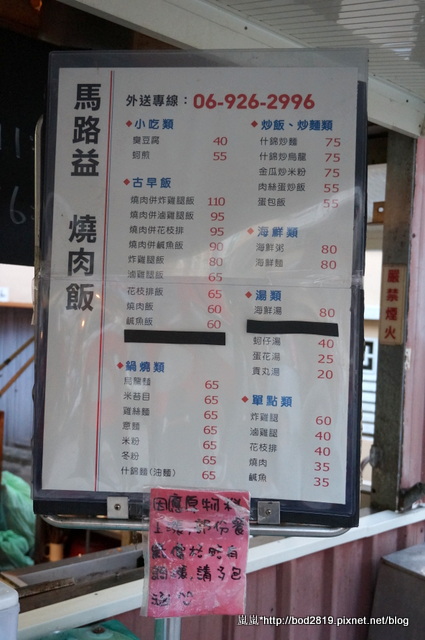 馬路益 燒肉飯
外送專線：06-926-2996
◆小吃類
臭豆腐 40
蚵煎 55
◆古早飯
燒肉併炸雞腿飯 110
燒肉併滷雞腿飯 95
燒肉併花枝排 95
燒肉併鹹魚飯 90
炸雞腿飯 80
滷雞腿飯 65
花枝排飯 65
燒肉飯 60
鹹魚飯 60
◆鍋燒類
烏龍麵 65
米苔目 65
雞絲麵 65
意麵 65
米粉 65
冬粉 65
什錦麵(油麵) 65
◆炒飯、炒麵類
什錦炒麵 75
什錦炒烏龍 75
金瓜炒米粉 75
肉絲蛋炒飯 55
蛋包飯 55
◆海鮮類
海鮮粥 80
海鮮麵 80
◆湯類
海鮮湯 80
蚵仔湯 40
蛋花湯 25
貢丸湯 20
◆單點類
炸雞腿 60
滷雞腿 40
花枝排 40
燒肉 35
鹹魚 35
因應原物料
上漲,部份餐
點價格略有
調漲,請多包
涵
嚴禁煙火
嵐嵐*http://bod2819.pixnet.net/blog